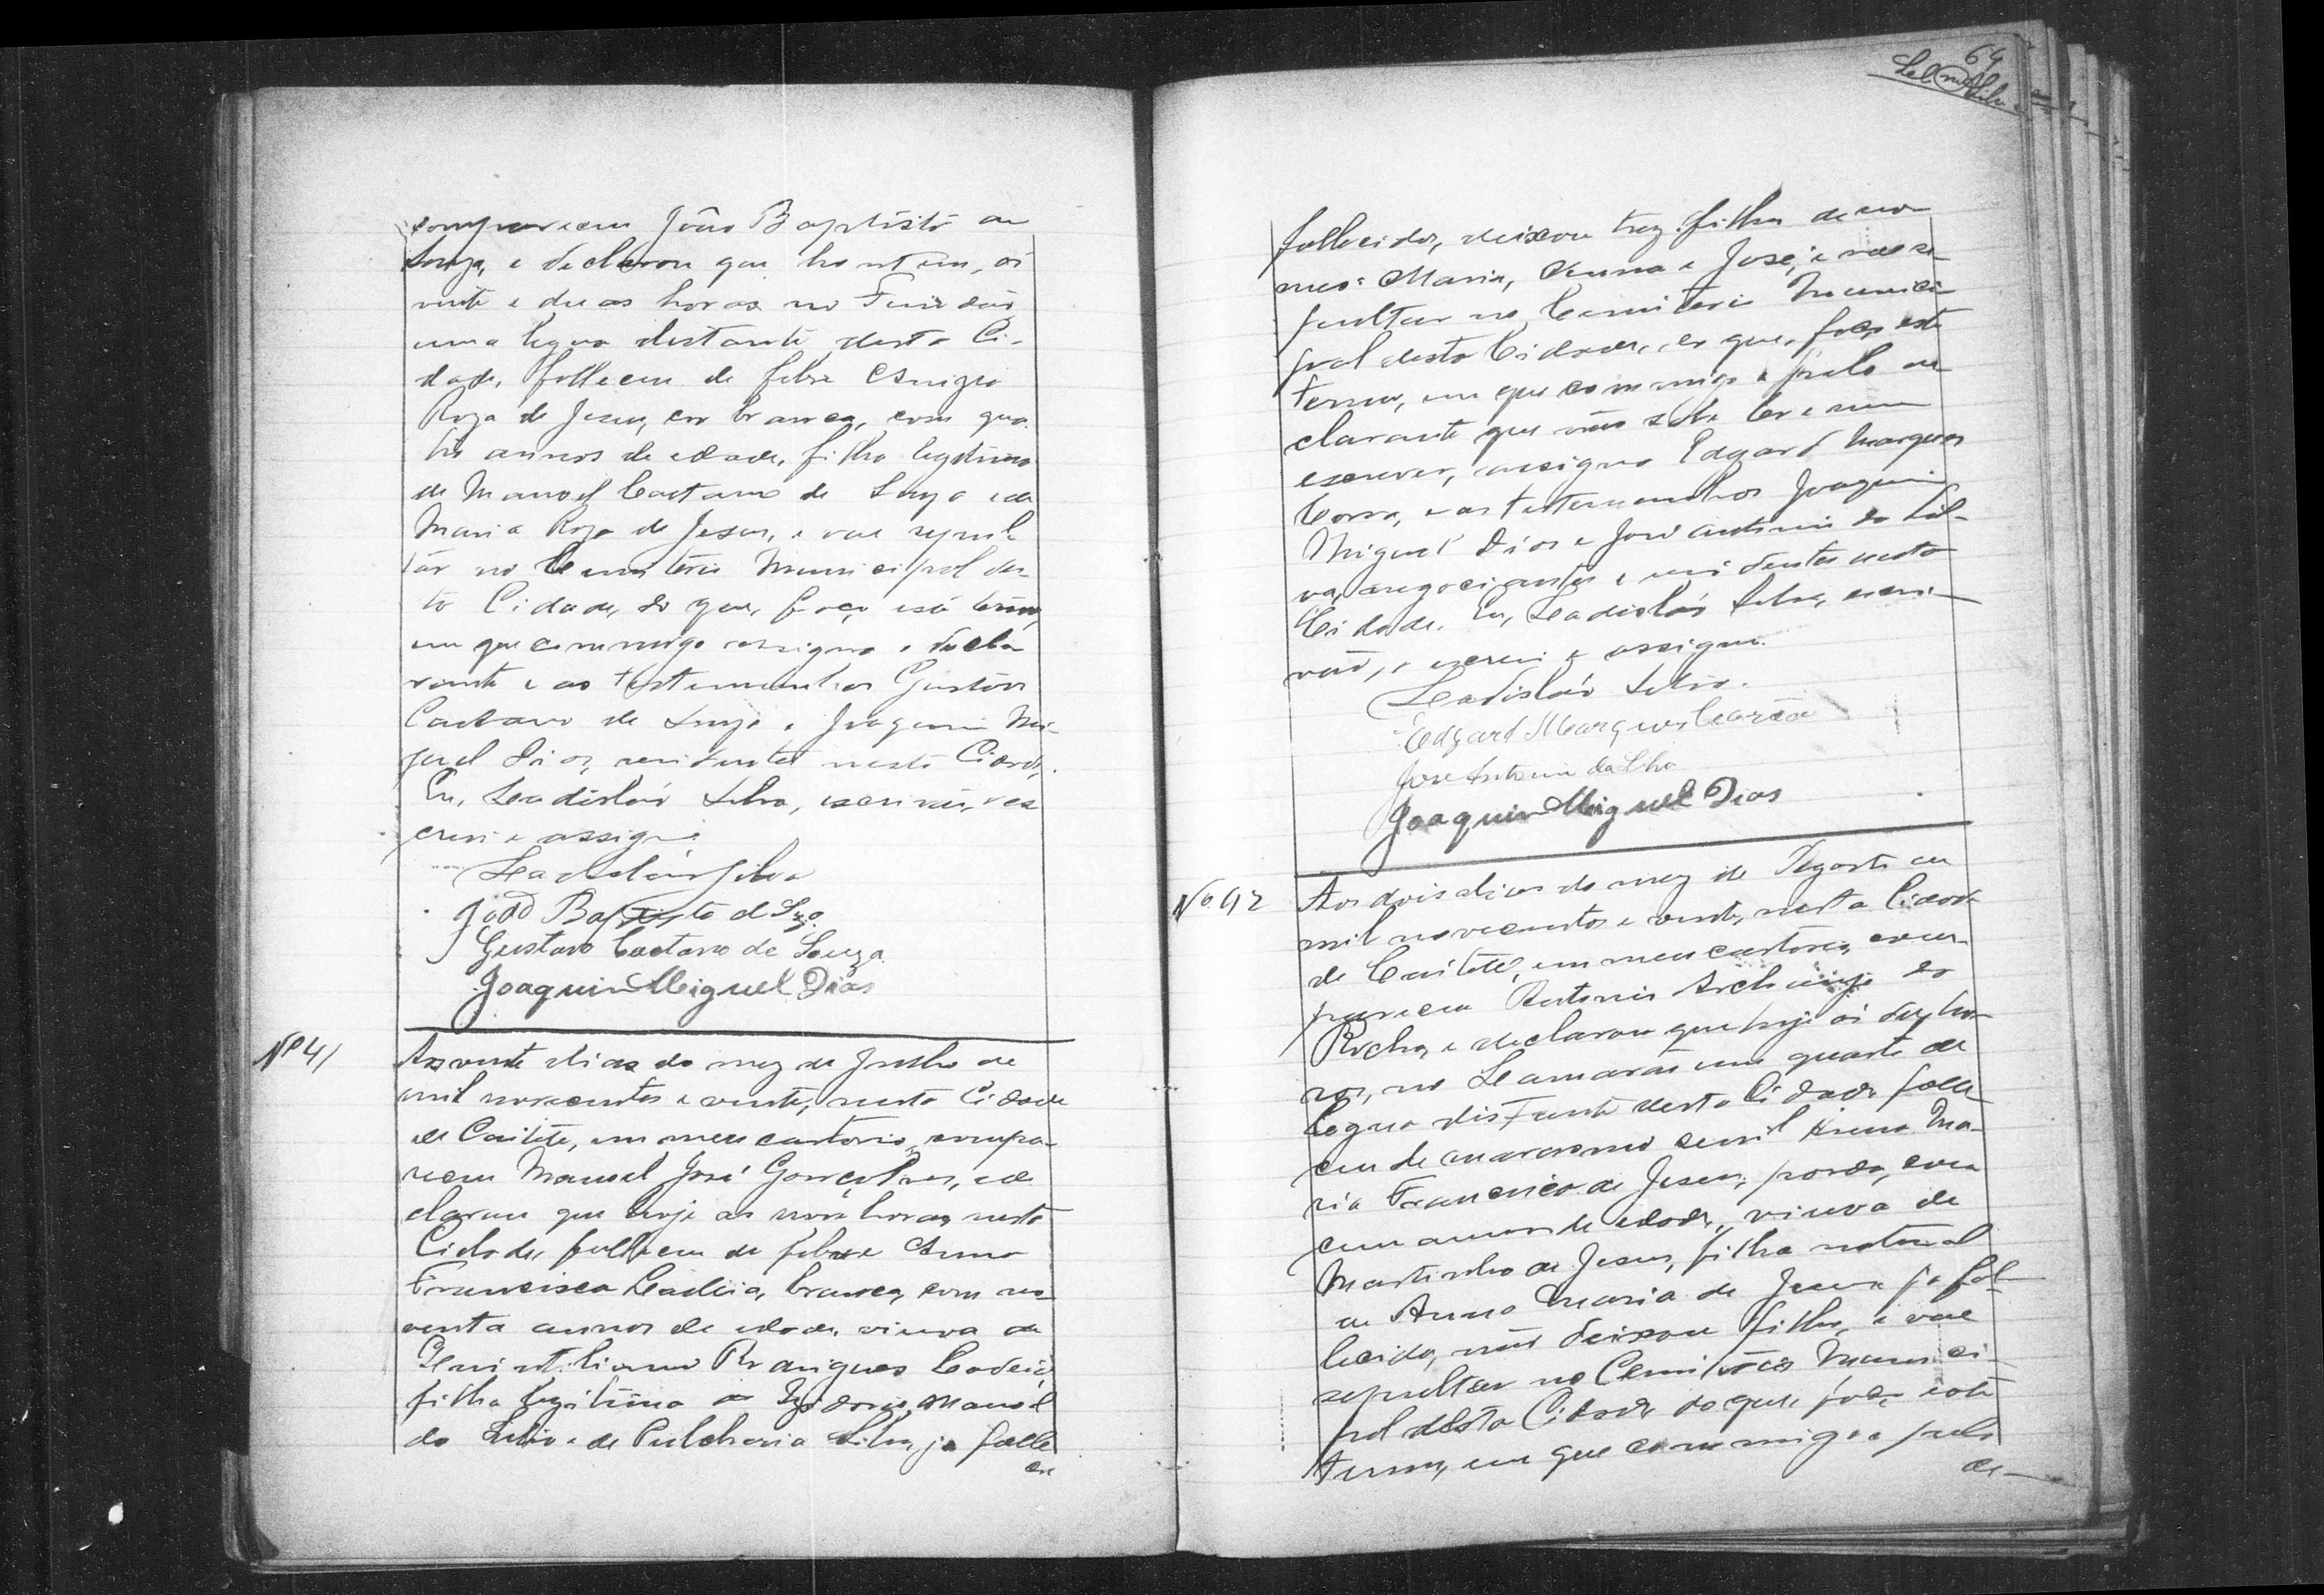 compareceu João Baptista de
Souza, e declarou que hontem, ás
vinte e duas horas no Fundão
uma legua distante desta Ci-
dade, falleceu de febre
Roza de Jesus, cor branca, com qua-
tro annos de edade, filha legitima
de Manoel Caetano de Souza e de
Maria Roza de Jesus, e vae sepul-
tar no Cemiterio Municipal des-
ta Cidade, do que, faço este termo,
em que commigo assigna o decla-
rante e as testemunhas Gustavo
Caetano de Souza e Joaquim Mi-
guel Dias, residentes nesta Cidade.
Eu, Leadisláo Silva, escrivão, es-
crevi e assigno.
Leadisláo Silva
João Baptista de Sza.
Gustavo Caetano de Souza.
Joaquim Miguel Dias
Nº 41
Aos vinte dias do mez de Julho de
mil novecentos e vinte, nesta Cidade
de Caiteté, em meu cartorio, compa-
receu Manoel José Gonçalves, e de-
clarou que hoje as nove horas nesta
Cidade, falleceu de febre Anna
Francisca Cadeia, branca, com no-
venta annos de edade, viuva de
Rodrigues Cadeia,
filha legitima de Izidorio Manoel
da Silva e de Pulcheria Silva, ja falle-
ci
64
fallecidos, deixou trez filhos de no-
mes: Maria, Anna e José, e vae se-
pultar no Cemiterio Munici-
pal desta Cidade, do que, faço este
termo, em que commigo e pelo de-
clarante que não sabe ler e nem
escrever, assigna Edgard Marques
, e as testemunhas Joaquim
Miguel Dias e José Antonio da Sil-
va, negociantes e residentes nesta
Cidade. Eu, Leadisláo Silva, escri-
vão, o escrevi e assigno.
Leadisláo Silva.
Edgard Marques
José Antonio da Silva
Joaquim Miguel Dias
Nº 42
Aos dois dias do mez de Agosto de
mil novecentos e vinte, nesta Cidade
de Caiteté, em meu cartorio, com-
pareceu Antonio Archanjo da
Rocha, e declarou que hoje ás dez ho-
ras, no um quarto de
legua distante desta Cidade falle-
ceu de marasmo senil Anna Ma-
ria Francisca de Jesus, parda, com
cem annos de edade, viuva de
Martinho de Jesus, filha natural
de Anna Maria de Jesus ja fal-
lecida, não deixou filhos, e vae
sepultar no Cemiterio Munici-
pal desta Cidade do que, faço este
termo, em que commigo e pelo
de-